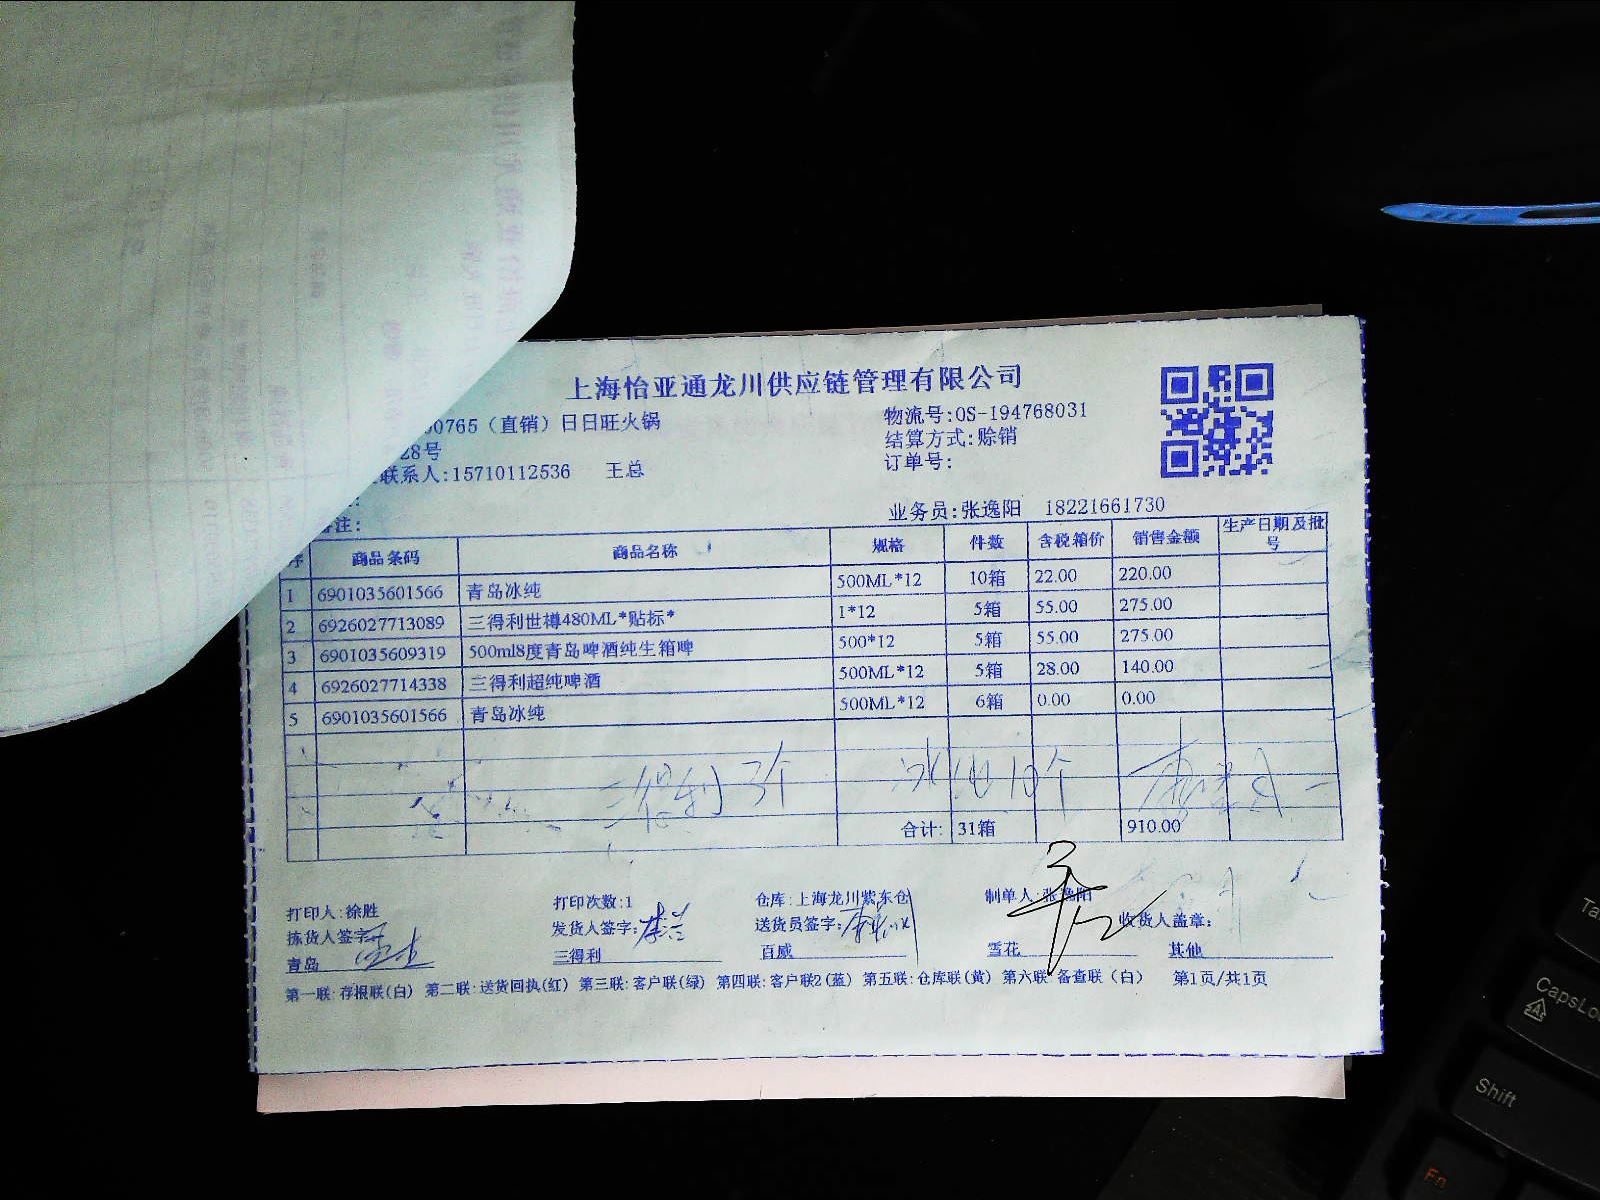 上海怡亚通龙川供应链管理有限公司
00765（直销）日日旺火锅
物流号:OS-194768031
28号
结算方式:赊销
联系人:15710112536 王总
订单号:
备注:
业务员:张逸阳 18221661730
序 商品条码 商品名称 规格 件数 含税箱价 销售金额 生产日期及批号
1 6901035601566 青岛冰纯 500ML*12 10箱 22.00 220.00
2 6926027713089 三得利世樽480ML*贴标* 1*12 5箱 55.00 275.00
3 6901035609319 500ml8度青岛啤酒纯生箱啤 500*12 5箱 55.00 275.00
4 6926027714338 三得利超纯啤酒 500ML*12 5箱 28.00 140.00
5 6901035601566 青岛冰纯 500ML*12 6箱 0.00 0.00
三得利3个
合计: 31箱 910.00
打印人:徐胜 打印次数:1 仓库:上海龙川紫东仓 制单人:张逸阳
拣货人签字: 发货人签字: 送货员签字: 收货人盖章:
青岛 三得利 百威 雪花 其他
第一联:存根联(白) 第二联:送货回执(红) 第三联:客户联(绿) 第四联:客户联2(蓝) 第五联:仓库联(黄) 第六联 备查联（白） 第1页/共1页
CapsLo
Shift
Fn